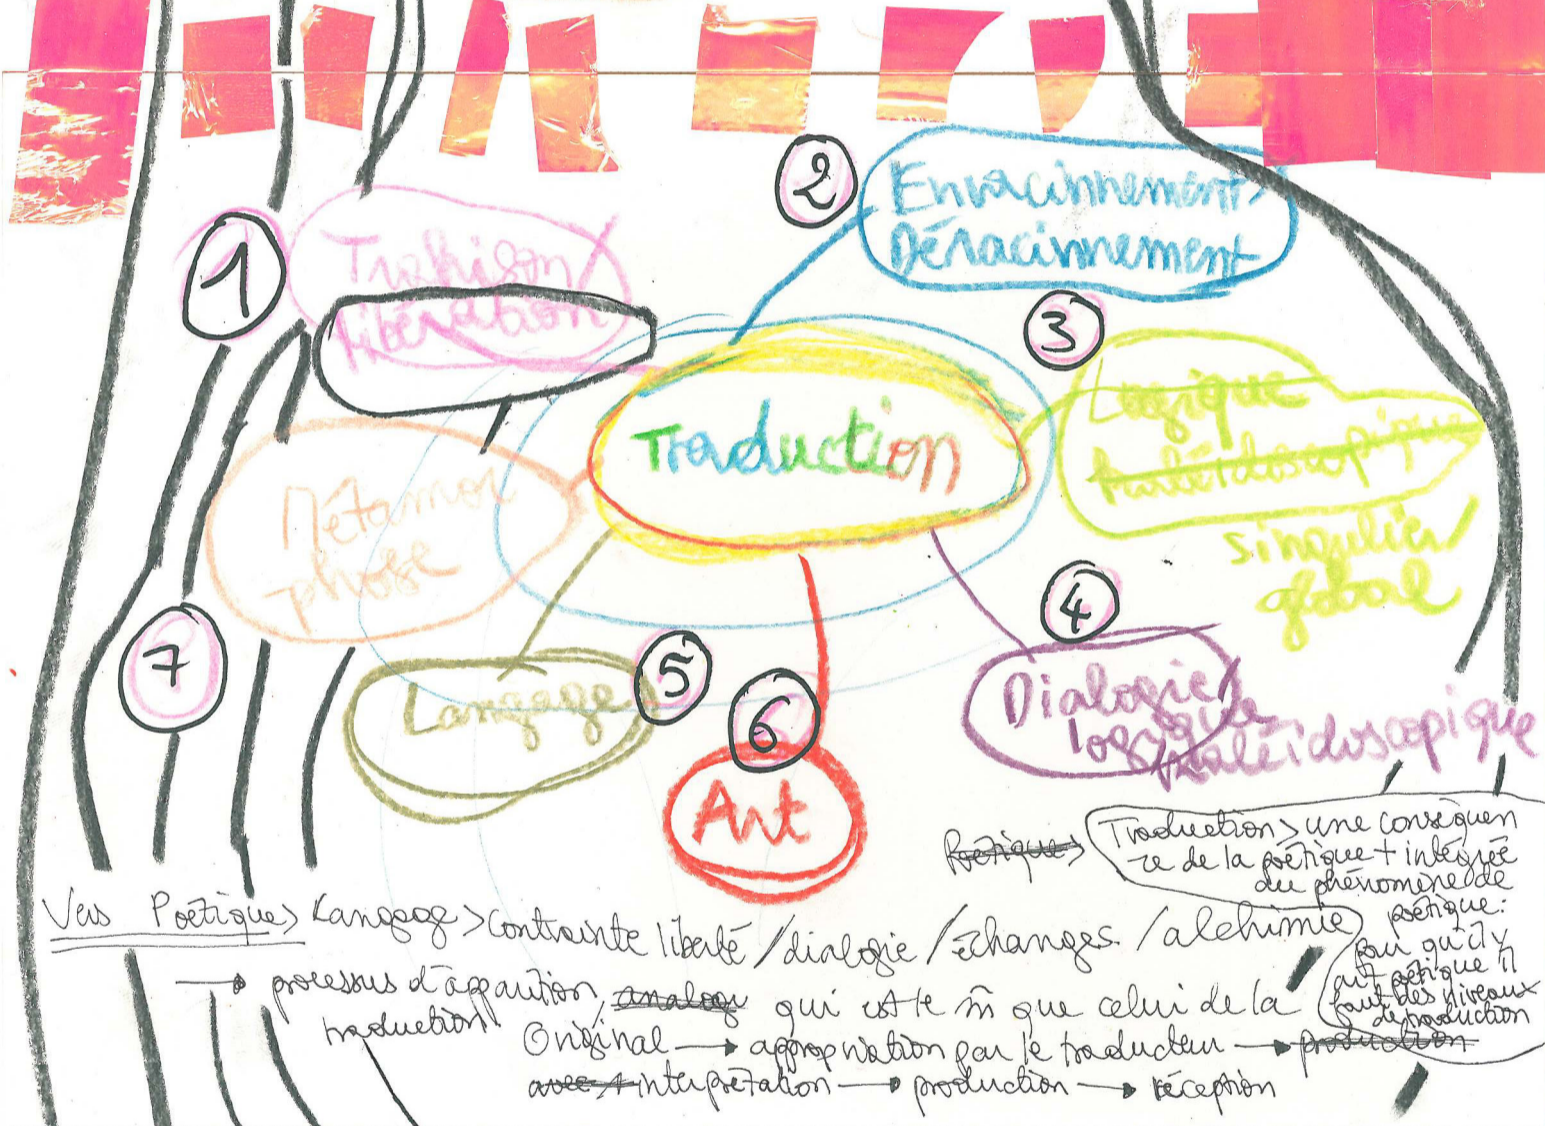 1
Trahison/
libération
2
Enracinnement>
Déracinnement
3
Logique
kaléidoscopique
singulier/
global
Traduction
Métamor
phose
4
Dialogie/
logique
kaléidoscopique
5
Langage
6
Art
7
Poétique>
Traduction > une conséquen
ce de la poétique + intégrée
au phénomène de
poétique:
pour qu'il y
ait poétique il
faut des niveaux
de traduction
Vers Poétique > Langage > contrainte liberté / dialogie / échanges / alchimie
→ processus d'apparition, analogu qui est le m̄ que celui de la
traduction.
Original → appropriation par le traducteur → production
avec + interprétation → production → réception